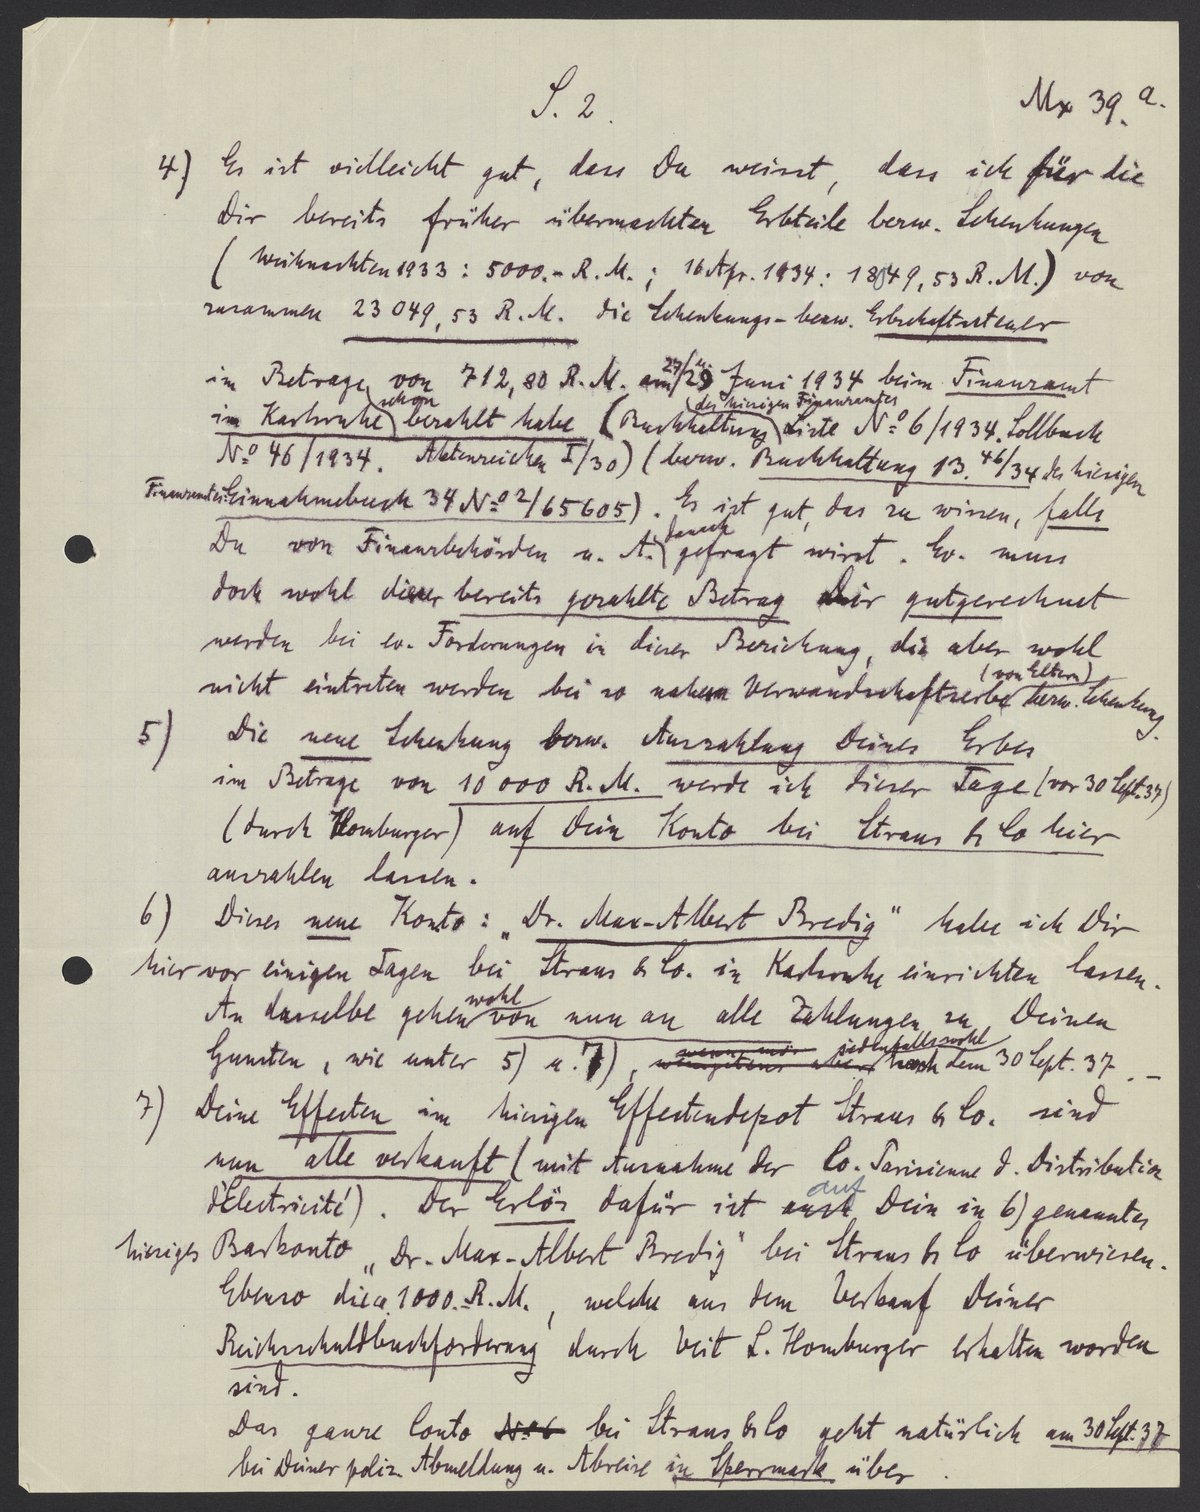 S. 2.
Mx 39. a.
4) Es ist vielleicht gut, dass Du weisst, dass ich für die
Dir bereits früher übermachten Erbteile bezw. Schenkungen
(Weihnachten 1933: 5000.- R.M.; 16 Apr. 1934: 18049,53 R.M.) von
zusammen 23 049,53 R.M. die Schenkungs- bezw. Erbschaftssteuer
im Betrage von 712,80 R.M. am 27/29 Juni 1934 beim Finanzamt
in Karlsruhe schon bezahlt habe (Buchhaltung des hiesigen Finanzamtes Liste No 6/1934. Sollbuch
No 46/1934. Aktenzeichen I/30) (bezw. Buchhaltung 13. 46/34 des hiesigen
Finanzamtes Einnahmebuch 34 No 2/65605). Es ist gut, das zu wissen, falls
Du von Finanzbehörden u. A. danach gefragt wirst. Ev. muss
doch wohl dieser bereits gezahlte Betrag Dir gutgerechnet
werden bei ev. Forderungen in dieser Beziehung, die aber wohl
nicht eintreten werden bei so nahem Verwandschaftserbe (von Eltern) bezw. Schenkung.
5) Die neue Schenkung bezw. Auszahlung Deines Erbes
im Betrage von 10 000 R.M. werde ich dieser Tage (vor 30 Sept. 37)
(durch Homburger) auf Dein Konto bei Straus & Co hier
auszahlen lassen.
6) Dieses neue Konto: „Dr. Max-Albert Bredig" habe ich Dir
hier vor einigen Tagen bei Straus & Co. in Karlsruhe einrichten lassen.
An dasselbe gehen wohl von nun an alle Zahlungen zu Deinen
Gunsten, wie unter 5) u. 7), jedenfalls wohl nach dem 30 Sept. 37. –
7) Deine Effecten im hiesigen Effectendepot Straus & Co. sind
nun alle verkauft (mit Ausnahme der Co. Parisienne d. Distribution
d'Electricité). Der Erlös dafür ist auf Dein in 6) genanntes
hiesiges Barkonto „Dr. Max-Albert Bredig" bei Straus & Co überwiesen.
Ebenso die ca. 1000.- R.M., welche aus dem Verkauf Deiner
Reichsschuldbuchforderung durch Veit L. Homburger erhalten worden
sind.
Das ganze Conto No 6 bei Straus & Co geht natürlich am 30 Sept. 37
bei Deiner poliz. Abmeldung u. Abreise in Sperrmark über.